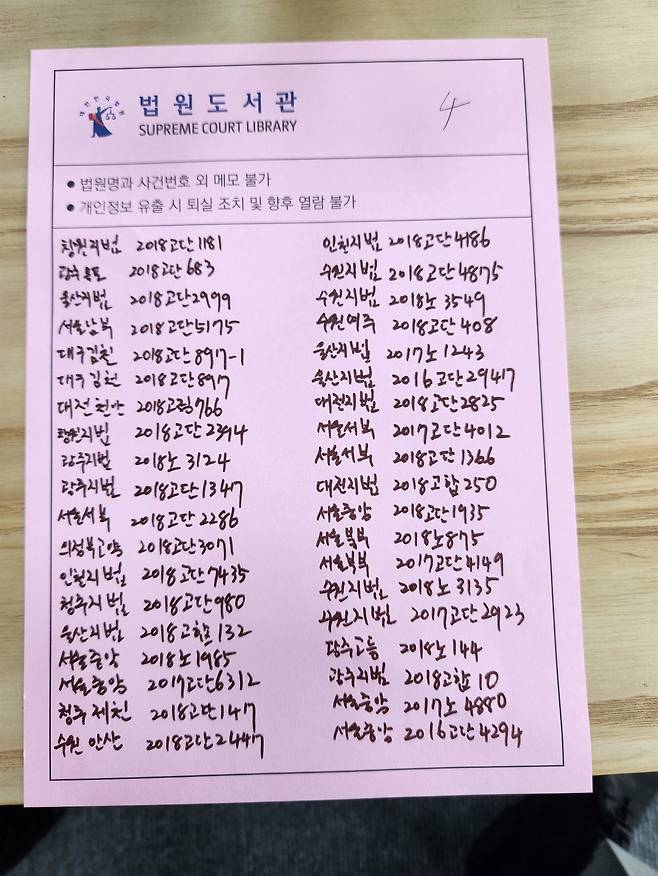 법원도서관
SUPREME COURT LIBRARY
4
● 법원명과 사건번호 외 메모 불가
● 개인정보 유출 시 퇴실 조치 및 향후 열람 불가
창원지법 2018고단1181
광주목포 2018고단683
울산지법 2018고단2999
서울남부 2018고단5175
대구김천 2018고단897-1
대구김천 2018고단897
대전천안 2018고정766
창원지법 2018고단2394
광주지법 2018노3124
광주지법 2018고단1347
서울서부 2018고단2286
의정부고양 2018고단3071
인천지법 2018고단7435
청주지법 2018고단980
울산지법 2018고합132
서울중앙 2018노1985
서울중앙 2017고단6312
청주제천 2018고단147
수원안산 2018고단2447
인천지법 2018고단4186
수원지법 2018고단4875
수원지법 2018노3549
수원여주 2018고단408
울산지법 2017노1243
울산지법 2016고단2947
대전지법 2018고단2825
서울서부 2017고단4012
서울서부 2018고단1366
대전지법 2018고합250
서울중앙 2018고단1935
서울북부 2018노875
서울북부 2017고단4149
수원지법 2018노3135
수원지법 2017고단2923
광주고등 2018노144
광주지법 2018고합10
서울중앙 2017노4880
서울중앙 2016고단4294